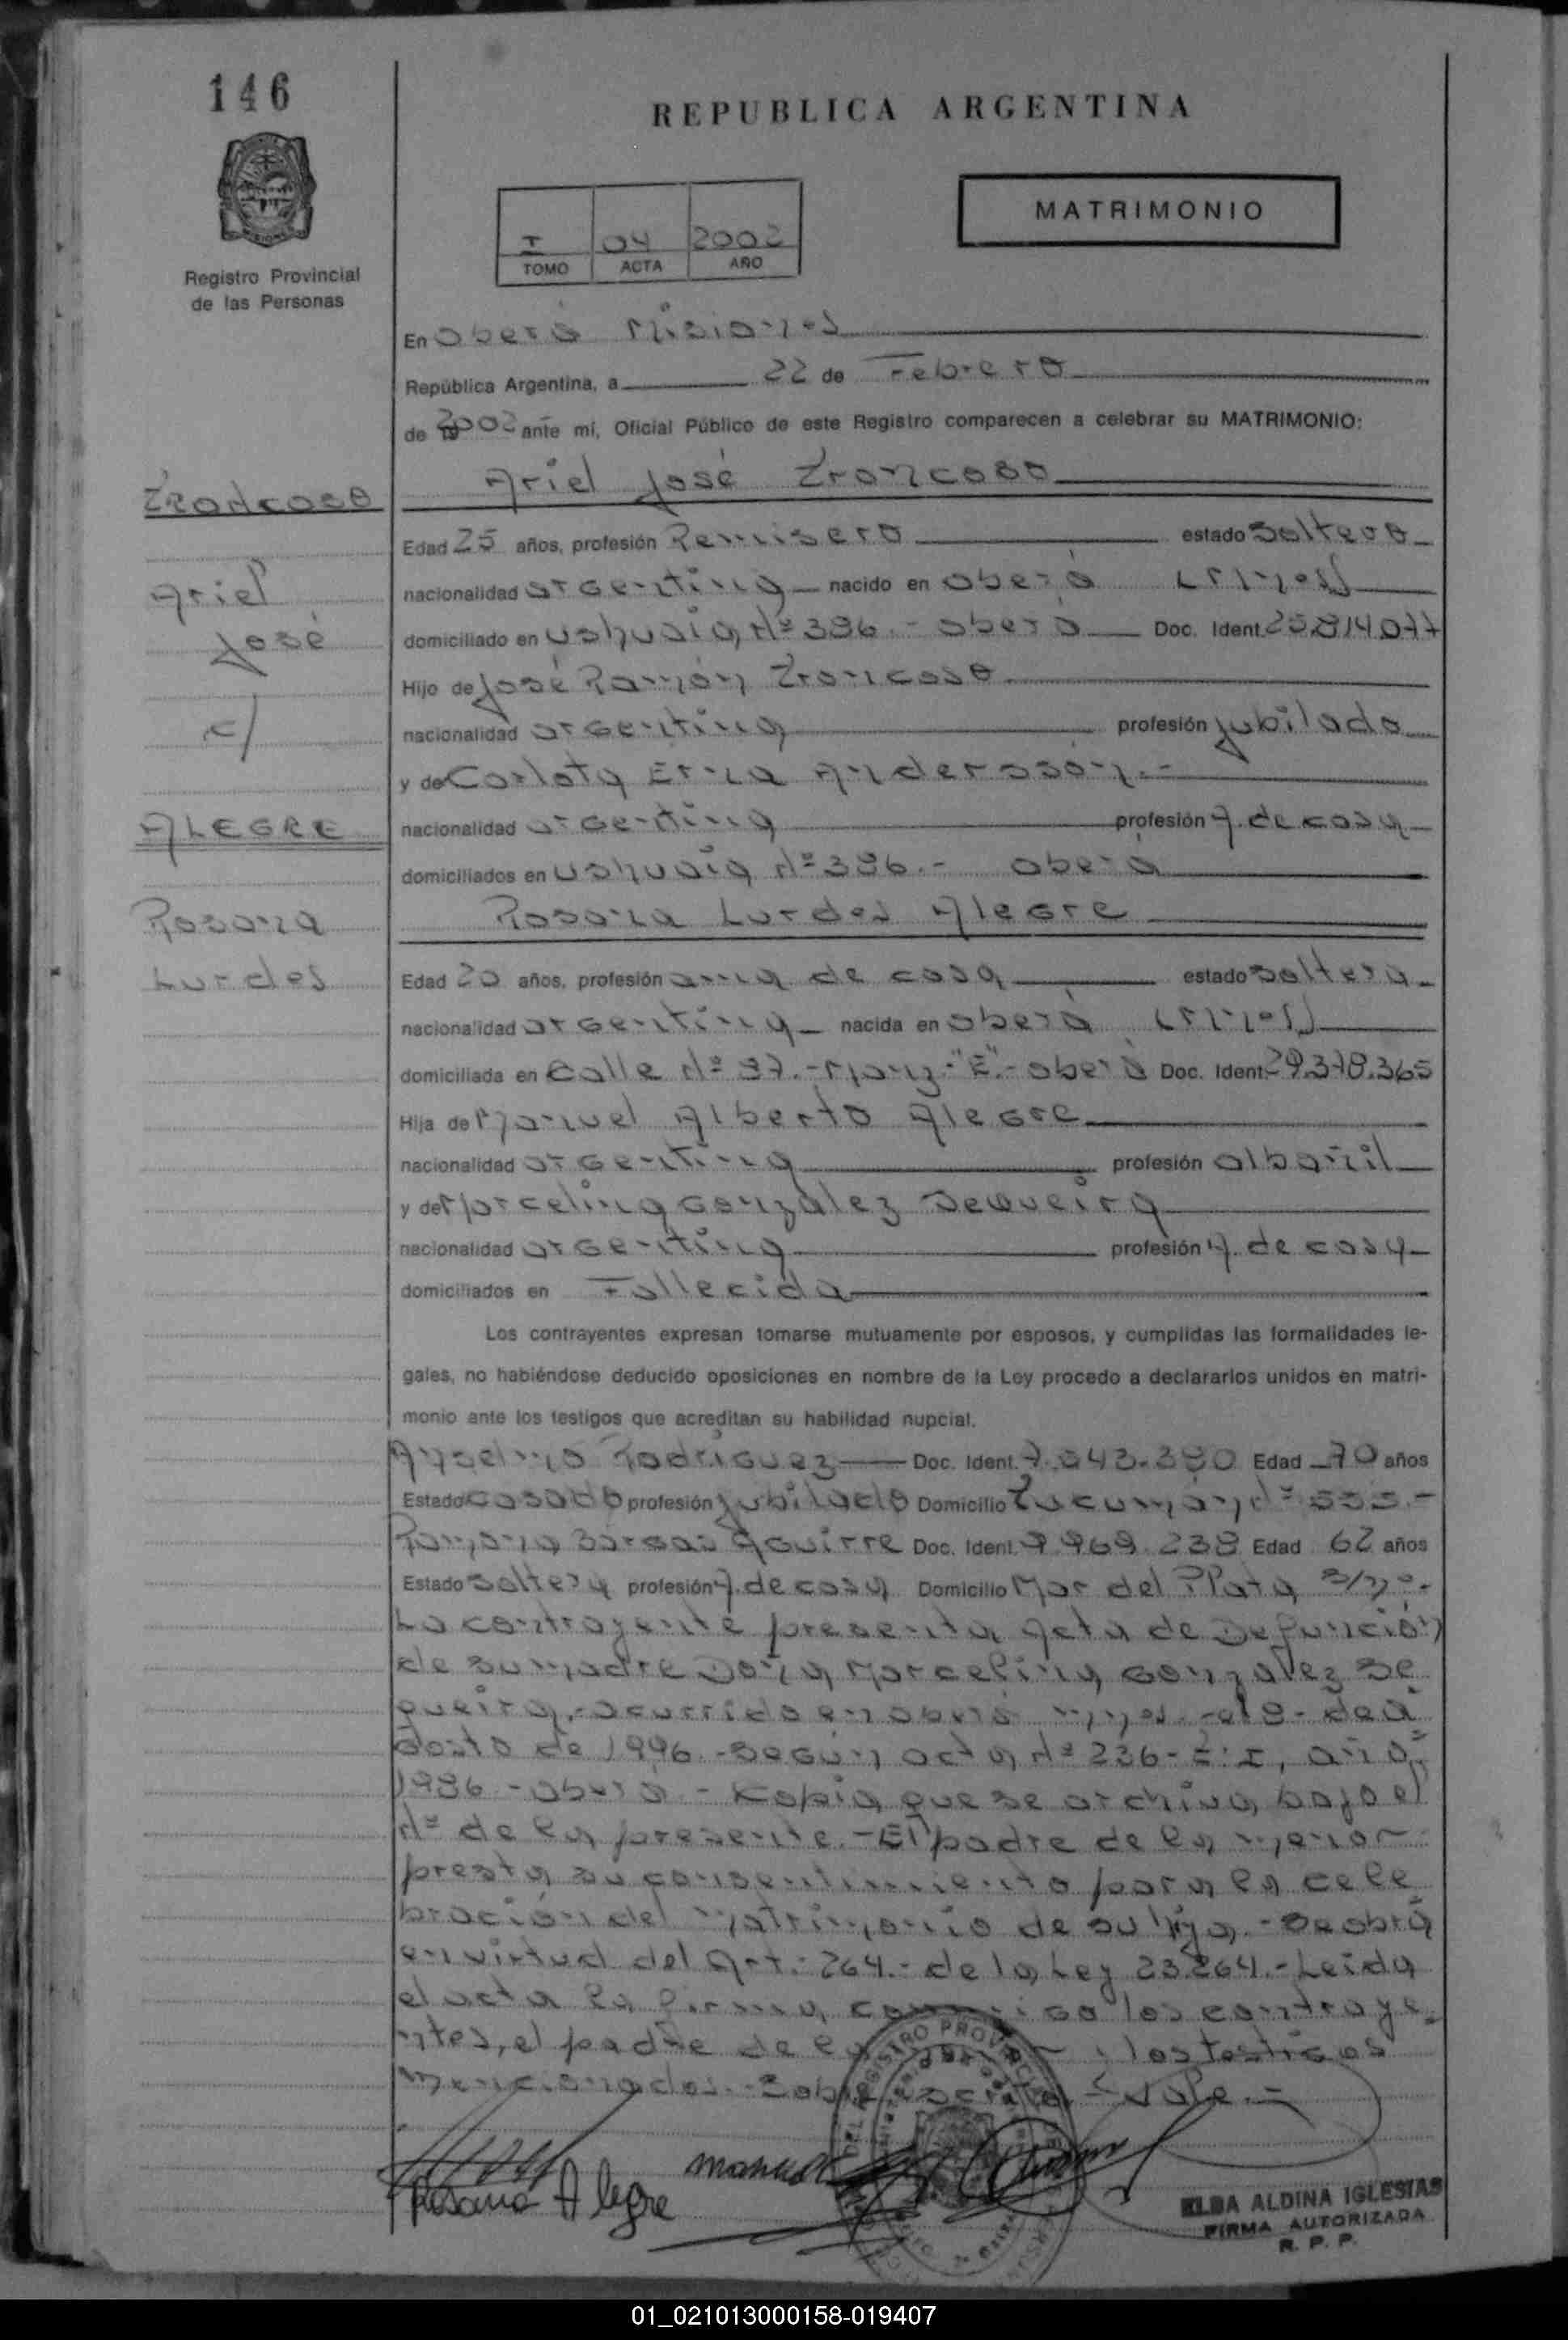 146
REPUBLICA ARGENTINA
MATRIMONIO
I 04 2002
TOMO ACTA AÑO
Registro Provincial
de las Personas
En Oberá Misiones
República Argentina, a 22 de Febrero
de 2002 ante mí, Oficial Público de este Registro comparecen a celebrar su MATRIMONIO:
Ariel José Troncoso
TRONCOSO
Edad 25 años, profesión Remisero estado Soltero
Ariel
nacionalidad argentina nacido en Oberá (Mnes)
José
domiciliado en Ushuaia, Nº 396.- Oberá Doc. Ident. 25.814.077
Hijo de José Ramón Troncoso
c/
nacionalidad argentina profesión jubilado
y de Carlota Erna Andersson.-
ALEGRE
nacionalidad argentina profesión A. de casa
domiciliados en Ushuaia Nº 396.- Oberá
Rosana
Rosana Lurdes Alegre
Lurdes
Edad 20 años, profesión ama de casa estado soltera
nacionalidad argentina nacida en Oberá (Mnes)
domiciliada en Calle Nº 97.-Manz-"E".-Oberá Doc. Ident. 29.378.365
Hija de Manuel Alberto Alegre
nacionalidad argentina profesión albañil
y de Marcelina González Sequeira
nacionalidad argentina profesión A. de casa
domiciliados en Fallecida
Los contrayentes expresan tomarse mutuamente por esposos, y cumplidas las formalidades le-
gales, no habiéndose deducido oposiciones en nombre de la Ley procedo a declararlos unidos en matri-
monio ante los testigos que acreditan su habilidad nupcial.
Anselmo Rodríguez Doc. Ident. 7.543.390 Edad 70 años
Estado casado profesión jubilado Domicilio Tucumán Nº 555.-
Ramona Borgas Aguirre Doc. Ident. 9.969.238 Edad 62 años
Estado soltera profesión A. de casa Domicilio Mar del Plata S/nº.-
La contrayente presenta acta de Defunción
de su madre Doña Marcelina González Se
queira, ocurrida en Oberá Mnes. el 9 de a
gosto de 1996.-Según acta Nº 236-T:I, año
1996-Oberá.- Copia que se archiva bajo el
Nº de la presente.-El padre de la menor
presta su consentimiento para la cele
bración del matrimonio de su hija.-Se obra
en virtud del Art.-264.-de la Ley 23.264.-Leída
el acta la firma, conmigo los contraye
ntes, el padre de la los testigos
mencionados.-Sobre Vale.-
Rosana Alegre
Manuel
REGISTRO PROVINCIAL
ELBA ALDINA IGLESIAS
FIRMA AUTORIZADA
R. P. P.
01_021013000158-019407